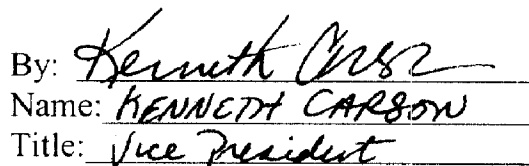 By: Kenneth Carson
Name: KENNETH CARSON
Title: Vice President